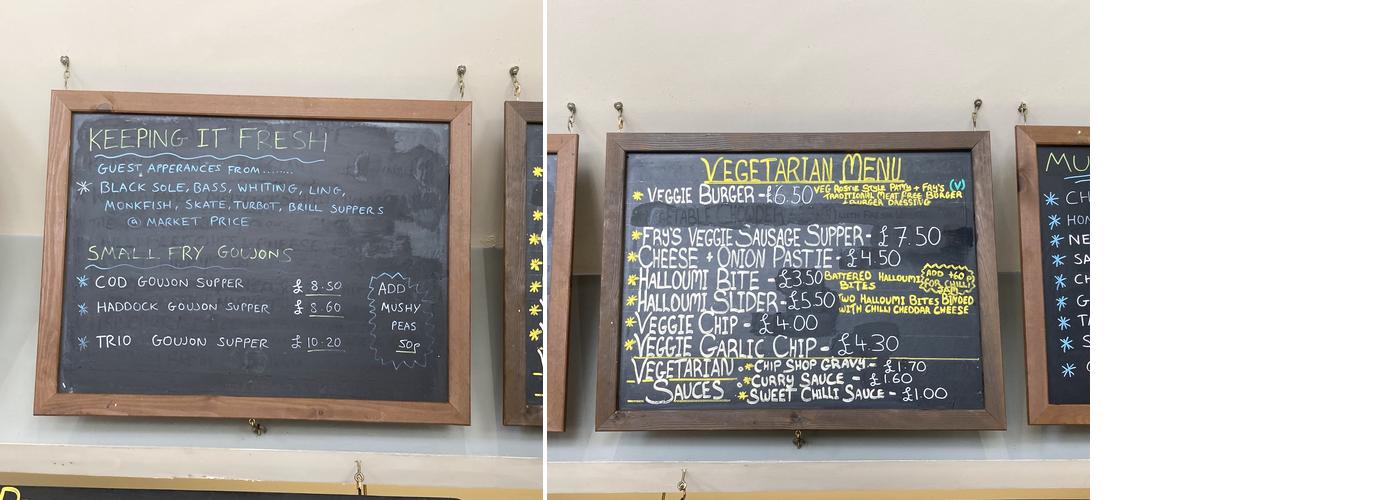 KEEPING IT FRESH
GUEST APPERANCES FROM........
BLACK SOLE, BASS, WHITING, LING,
MONKFISH, SKATE, TURBOT, BRILL SUPPERS
@ MARKET PRICE
SMALL FRY GOUJONS
COD GOUJON SUPPER £ 8.50
HADDOCK GOUJON SUPPER £ 8.60
TRIO GOUJON SUPPER £ 10.20
ADD
MUSHY
PEAS
50p
VEGETARIAN MENU
VEGGIE BURGER - £6.50 VEG ROSTIE STYLE PATTY + FRY'S (V)
TRADITIONAL MEAT FREE BURGER
+ BURGER DRESSING
FRY'S VEGGIE SAUSAGE SUPPER - £7.50
CHEESE + ONION PASTIE - £4.50
HALLOUMI BITE - £3.50 BATTERED HALLOUMI
BITES
ADD +60p
FOR CHILLI
HALLOUMI SLIDER - £5.50 TWO HALLOUMI BITES BINDED
WITH CHILLI CHEDDAR CHEESE
VEGGIE CHIP - £4.00
VEGGIE GARLIC CHIP - £4.30
VEGETARIAN
SAUCES
CHIP SHOP GRAVY - £1.70
CURRY SAUCE - £1.60
SWEET CHILLI SAUCE - £1.00
MU
CH
HON
NE
SA
CH
G
TA
S